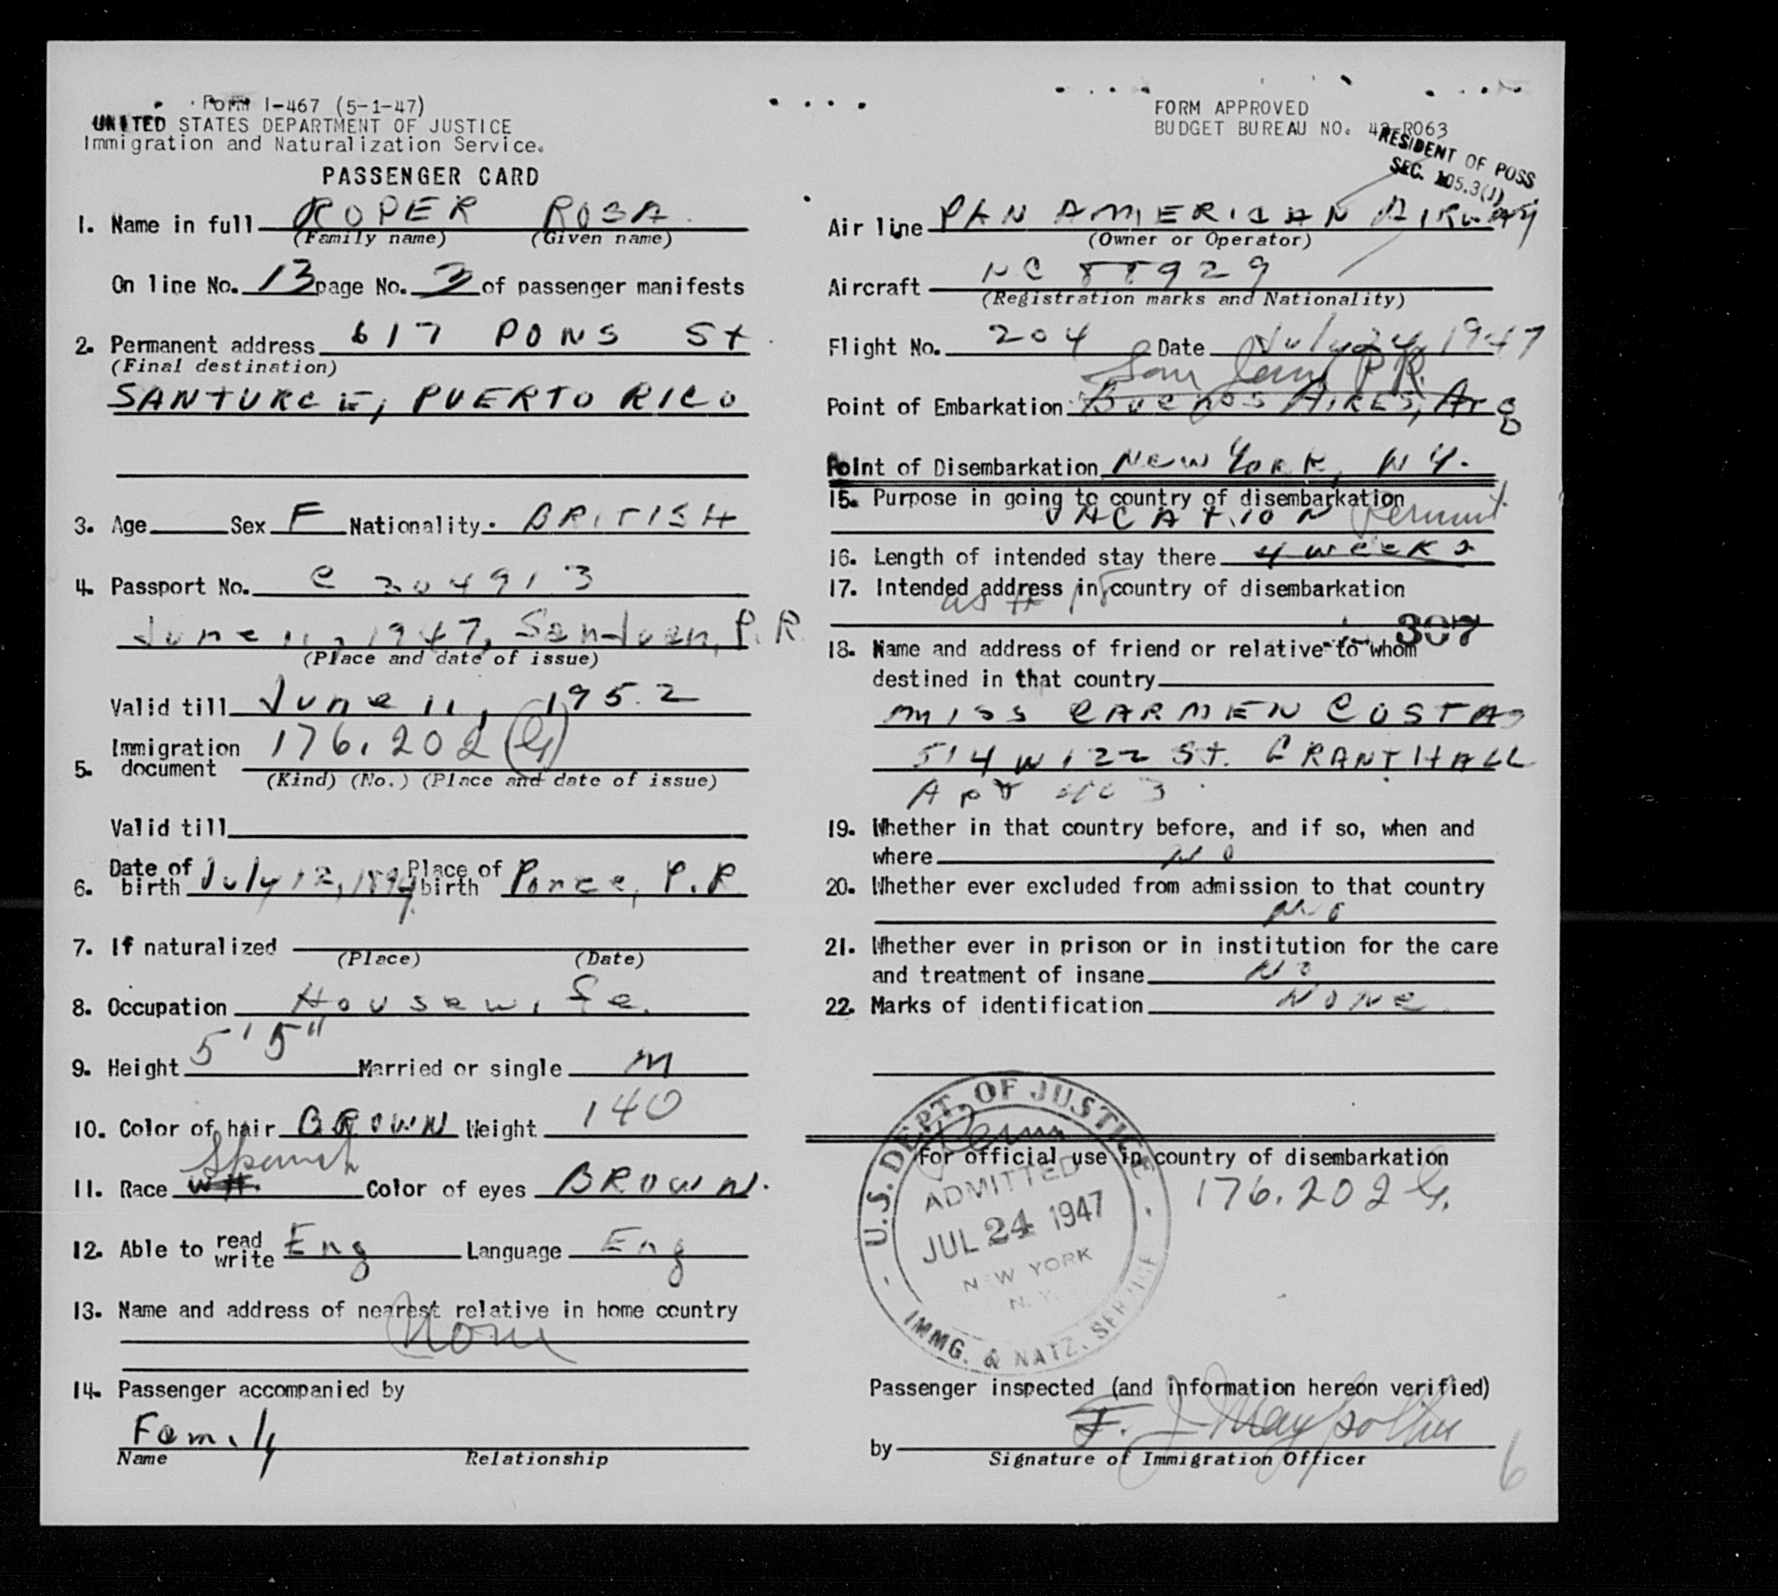 Form I-467 (5-1-47)
UNITED STATES DEPARTMENT OF JUSTICE
Immigration and Naturalization Service.
PASSENGER CARD
1. Name in full ROPER ROSA
(Family name) (Given name)
On line No. 13 page No. 3 of passenger manifests
2. Permanent address 617 PONS St
(Final destination)
SANTURCE, PUERTO RICO
3. Age Sex F Nationality BRITISH
4. Passport No. C 204913
June 11, 1947, San Juan, P.R.
(Place and date of issue)
Valid till June 11, 1952
5. Immigration document 176.202 (G)
(Kind) (No.) (Place and date of issue)
Valid till
6. Date of birth July 12, Place of birth Ponce, P.R.
7. If naturalized
(Place) (Date)
8. Occupation Housewife.
9. Height 5'5" Married or single M
10. Color of hair BROWN Weight 140
Spanish
11. Race WH. Color of eyes BROWN.
12. Able to read write Eng Language Eng
13. Name and address of nearest relative in home country
None
14. Passenger accompanied by
Family
Name Relationship
FORM APPROVED
BUDGET BUREAU NO. 43-R063
RESIDENT OF POSS
SEC. 105.3(J)
Air line PAN AMERICAN AIRWAY
(Owner or Operator)
Aircraft NC 88929
(Registration marks and Nationality)
Flight No. 204 Date July 24, 1947
San Juan P.R.
Point of Embarkation Buenos Aires, Arg
Point of Disembarkation New York, N Y.
15. Purpose in going to country of disembarkation
VACATION Permt
16. Length of intended stay there 4 weeks
17. Intended address in country of disembarkation
as # 18
307
18. Name and address of friend or relative to whom
destined in that country
MISS CARMEN COSTAS
514 W 122 St. GRANT HALL
Apt 403
19. Whether in that country before, and if so, when and
where No
20. Whether ever excluded from admission to that country
No
21. Whether ever in prison or in institution for the care
and treatment of insane No
22. Marks of identification None
For official use in country of disembarkation
176.202 G.
U.S. DEPT. OF JUSTICE
Perm
ADMITTED
JUL 24 1947
NEW YORK
N.Y.
IMMG. & NATZ. SERVICE
Passenger inspected (and information hereon verified)
by F. J.
Signature of Immigration Officer
6